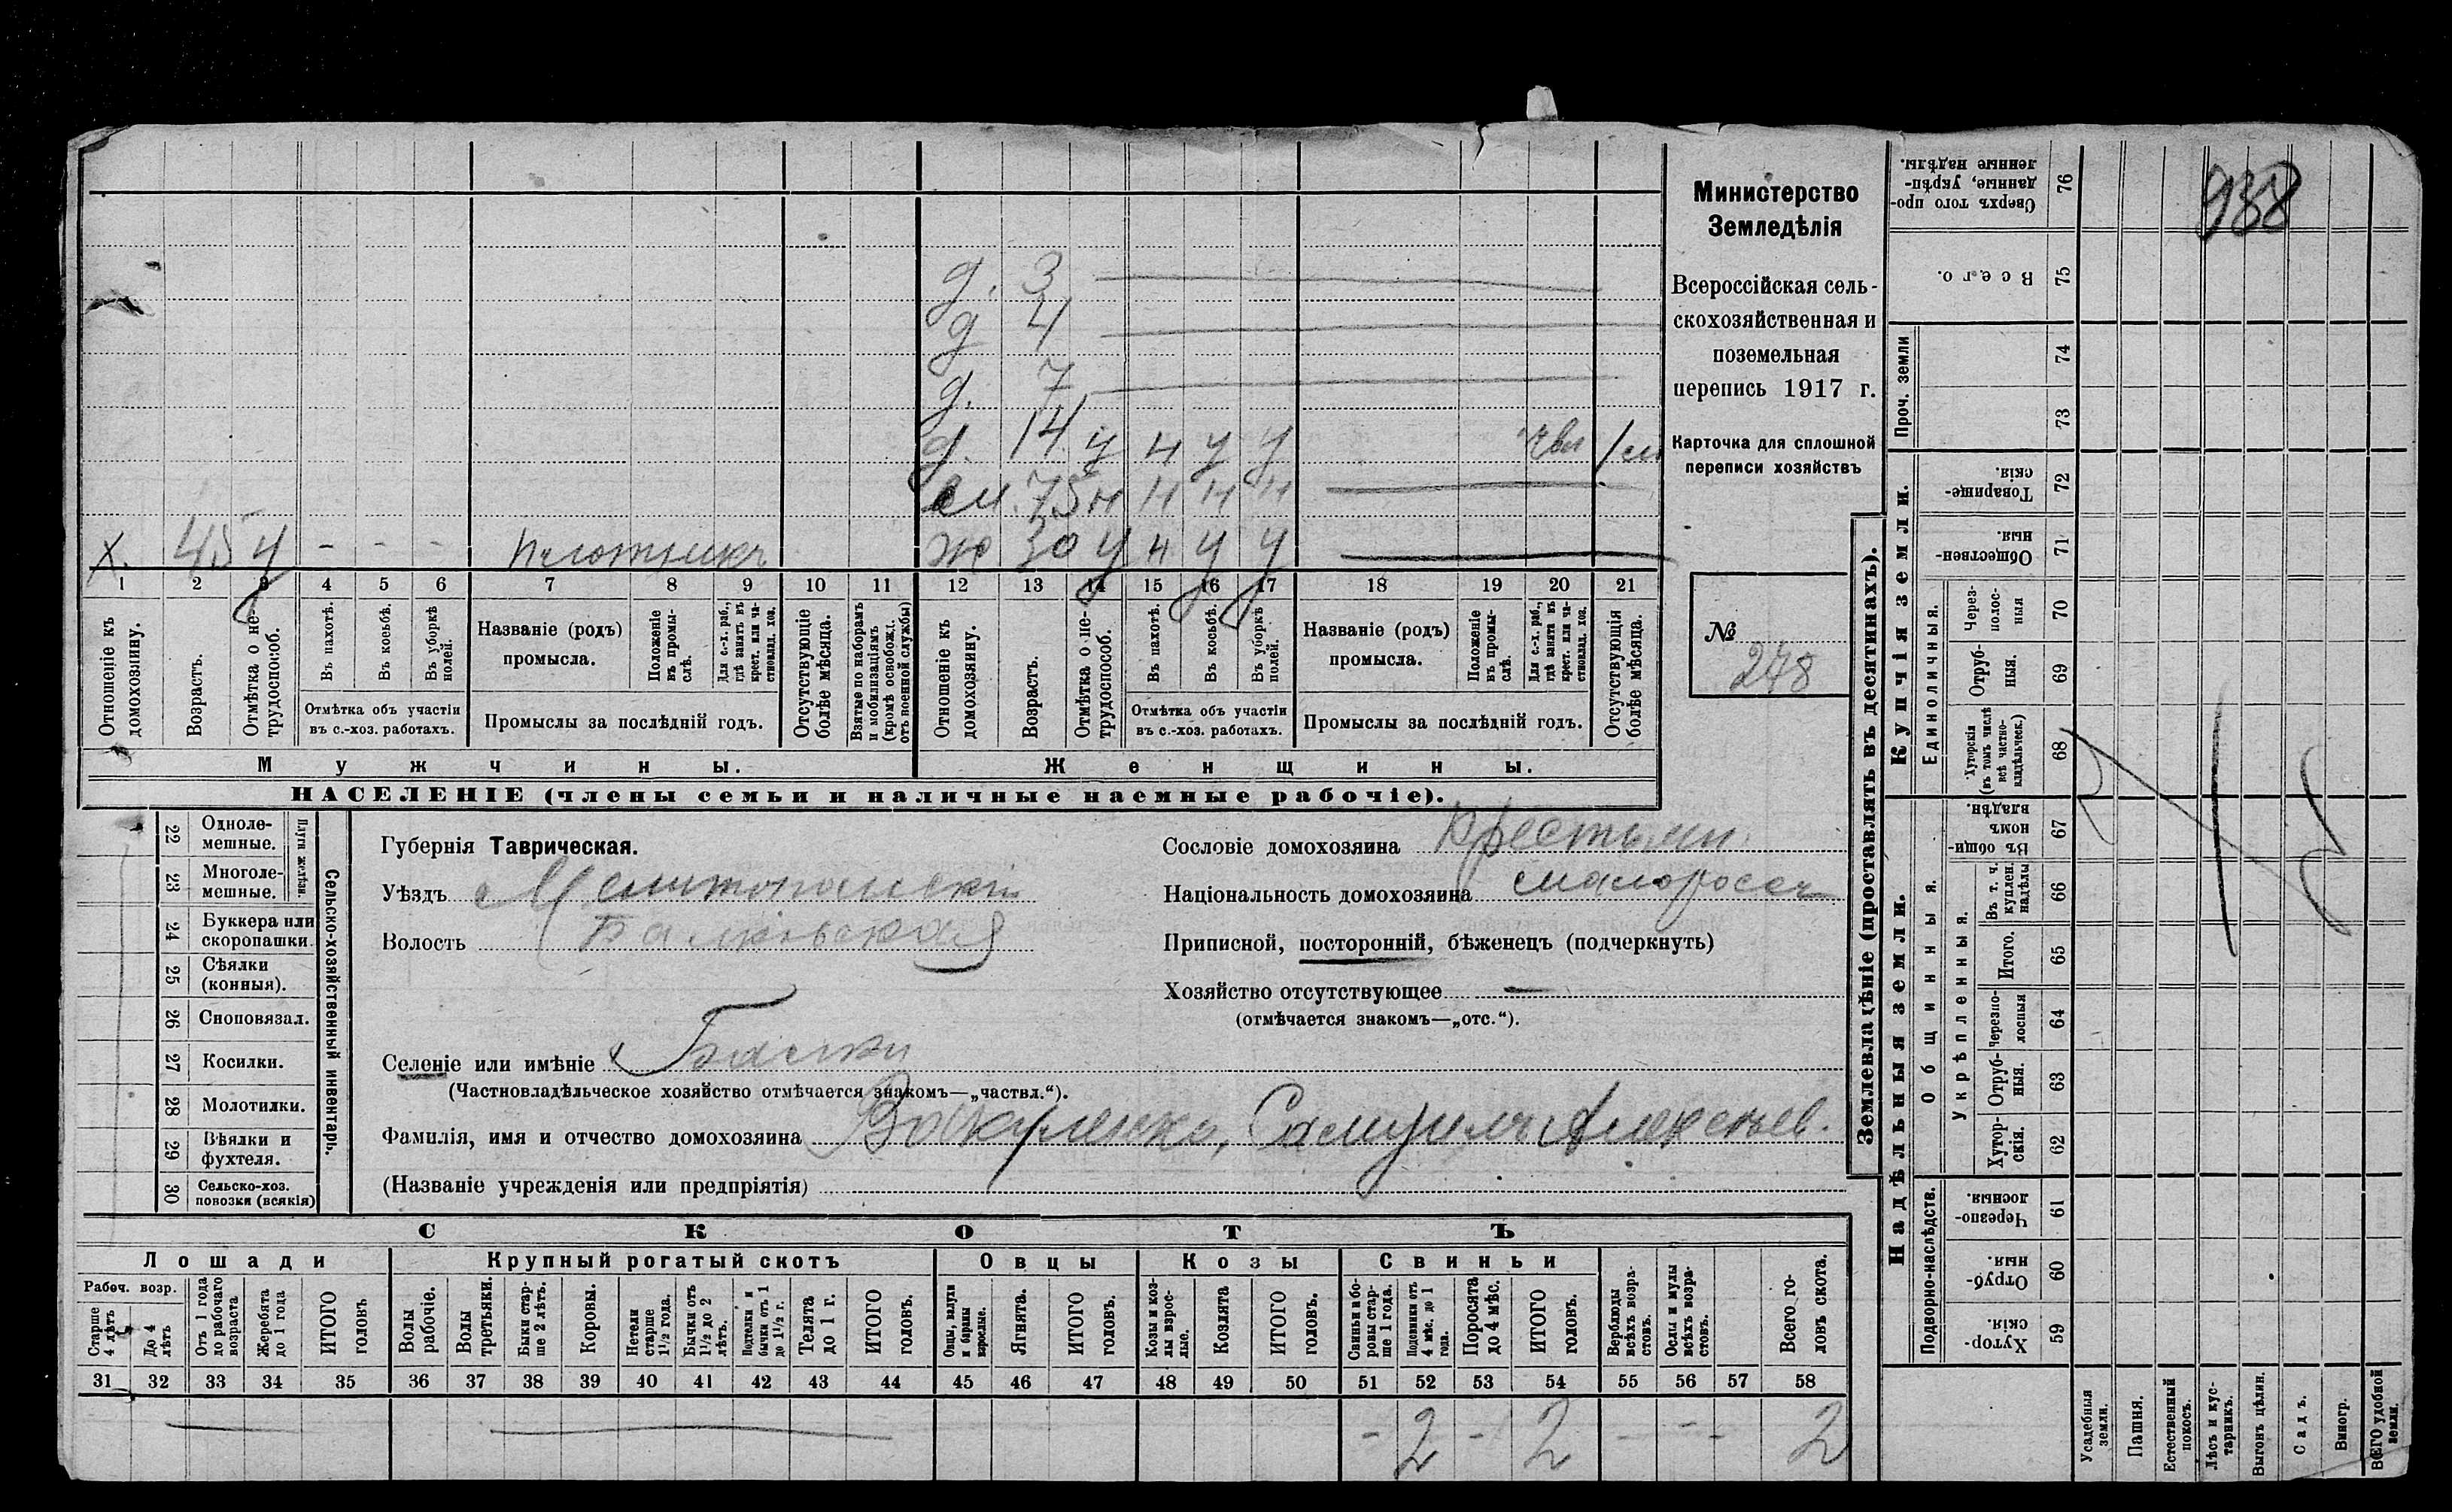 938
Министерство
Земледѣлія
Всероссійская сель-
скохозяйственная и
поземельная
перепись 1917 г.
Карточка для сплошной
переписи хозяйствъ
№
248
д. 3
д 4
д. 7
д. 14 у н у у 1 м
м. 75 н н н н
х. 45 у - - - плотникъ ж 30 у н у у
1 2 3 4 5 6 7 8 9 10 11 12 13 14 15 16 17 18 19 20 21
Отношеніе къ домохозяину.
Возрастъ.
Отмѣтка о не-трудоспособ.
Въ пахотѣ.
Въ косьбѣ.
Въ уборкѣ полей.
Отмѣтка объ участіи
въ с.-хоз. работахъ.
Названіе (родъ)
промысла.
Положеніе въ промы-слѣ.
Для с.-х. раб., гдѣ занятъ въ крест. или ча-стновлад. хоз.
Промыслы за послѣдній годъ.
Отсутствующіе болѣе мѣсяца.
Взятые по наборамъ и мобилизаціямъ (кромѣ освобожд. отъ военной службы)
Отношеніе къ домохозяину.
Возрастъ.
Отмѣтка о не-трудоспособ.
Въ пахотѣ.
Въ косьбѣ.
Въ уборкѣ полей.
Отмѣтка объ участіи
въ с.-хоз. работахъ.
Названіе (родъ)
промысла.
Положеніе въ промы-слѣ.
Для с.-х. раб., гдѣ занята въ крест. или ча-стновлад. хоз.
Промыслы за послѣдній годъ.
Отсутствующія болѣе мѣсяца.
Мужчины. Женщины.
НАСЕЛЕНІЕ (члены семьи и наличные наемные рабочіе).
Сельско-хозяйственный инвентарь.
Плуги желѣзн.
22 Одноле-мешные.
23 Многоле-мешные.
24 Буккера или скоропашки.
25 Сѣялки (конныя).
26 Сноповязал.
27 Косилки.
28 Молотилки.
29 Вѣялки и фухтеля.
30 Сельско-хоз. повозки (всякія)
Губернія Таврическая.
Уѣздъ Мелитопольскій
Волость Балковская
Селеніе или имѣніе Балки
(Частновладѣльческое хозяйство отмѣчается знакомъ—„частвл.“).
Фамилія, имя и отчество домохозяина Самуилъ Алексѣев.
(Названіе учрежденія или предпріятія)
Сословіе домохозяина Крестьян.
Національность домохозяина малороссъ
Приписной, посторонній, бѣженецъ (подчеркнуть)
Хозяйство отсутствующее —
(отмѣчается знакомъ—„отс.“).
СКОТЪ
Лошади Крупный рогатый скотъ Овцы Козы Свиньи
Рабоч. возр.
Старше 4 лѣтъ
До 4 лѣтъ
Отъ 1 года до рабочаго возраста
Жеребята до 1 года
ИТОГО головъ
Волы рабочіе.
Волы третьяки.
Быки стар-ше 2 лѣтъ.
Коровы.
Нетели старше 1½ года.
Бычки отъ 1½ до 2 лѣтъ.
Подтелки и бычки отъ 1 до 1½ г.
Телята до 1 г.
ИТОГО головъ.
Овцы, валухи и бараны взрослые.
Ягнята.
ИТОГО головъ.
Козы и коз-лы взрос-лые.
Козлята
ИТОГО головъ.
Свиньи и бо-ровы стар-ше 1 года.
Подсвинки отъ 4 мѣс. до 1 года.
Поросята до 4 мѣс.
ИТОГО головъ.
Верблюды всѣхъ возра-стовъ.
Ослы и мулы всѣхъ возра-стовъ.
Всего го-ловъ скота.
31 32 33 34 35 36 37 38 39 40 41 42 43 44 45 46 47 48 49 50 51 52 53 54 55 56 57 58
- 2 - 2 - - - 2
Землевладѣніе (проставлять въ десятинахъ).
Купчія земли.
Надѣльныя земли.
Проч. земли
Единоличныя.
Общинныя.
Укрѣпленныя.
Подворно-наслѣдств.
76 Сверхъ того про-данные, укрѣп-ленные надѣлы.
75 Всего.
74
73
72 Товарище-скія.
71 Обществен-ныя.
70 Через-полос-ныя
69 Отруб-ныя.
68 Хуторскія (въ томъ числѣ всѣ частно-владѣльческ.)
67 Въ общи-номъ владѣн.
66 Въ т. ч. куплен. надѣлы
65 Итого.
64 Черезпо-лосныя
63 Отруб-ныя.
62 Хутор-скія.
61 Черезпо-лосныя.
60 Отруб-ныя.
59 Хутор-скія.
Усадебныя земли.
Пашня.
Естественный покосъ.
Лѣсъ и кус-тарникъ.
Выгонъ цѣлин.
Садъ.
Виногр.
ВСЕГО удобной земли.